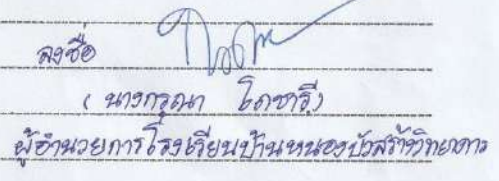 ลงชื่อ
( นางกรุณา โภชารี )
ผู้อำนวยการโรงเรียนบ้านหนองบัวสร้างวิทยาคาร